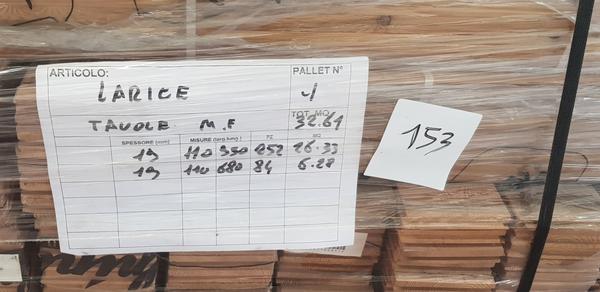 ARTICOLO: PALLET N°
LARICE 1
TOT. MQ
TAVOLE M.F 32.61
SPESSORE (mm) MISURE (larg.lung.) PZ MQ
19 110 950 252 26.33
19 110 680 84 6.28
153